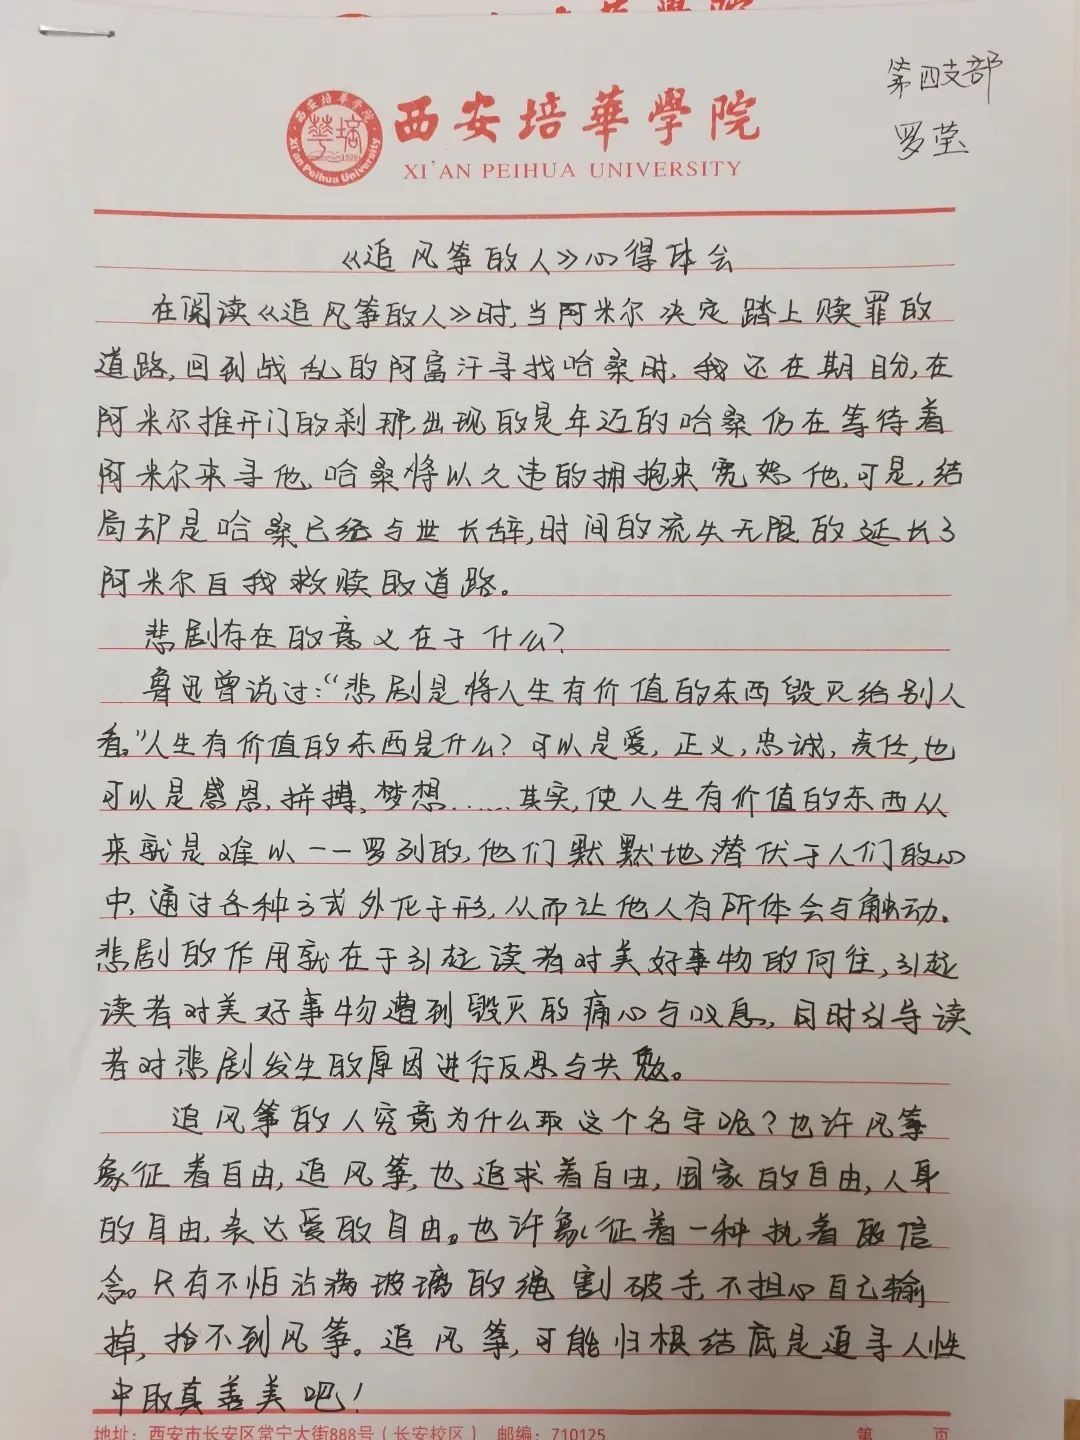 第四支部
罗莹
西安培華學院
XI'AN PEIHUA UNIVERSITY
西安培華学院
Xi'an Peihua University
1928
《追风筝的人》心得体会
在阅读《追风筝的人》时,当阿米尔决定踏上赎罪的
道路,回到战乱的阿富汗寻找哈桑时,我还在期盼,在
阿米尔推开门的刹那,出现的是年迈的哈桑仍在等待着
阿米尔来寻他,哈桑将以久违的拥抱来宽恕他,可是,结
局却是哈桑已经与世长辞,时间的流失无限的延长了
阿米尔自我救赎的道路。
悲剧存在的意义在于什么?
鲁迅曾说过:“悲剧是将人生有价值的东西毁灭给别人
看。”人生有价值的东西是什么?可以是爱,正义,忠诚,责任,也
可以是感恩,拼搏,梦想……其实,使人生有价值的东西从
来就是难以一一罗列的,他们默默地潜伏于人们的心
中,通过各种方式外化于形,从而让他人有所体会与触动。
悲剧的作用就在于引起读者对美好事物的向往,引起
读者对美好事物遭到毁灭的痛心与叹息,同时引导读
者对悲剧发生的原因进行反思与共勉。
追风筝的人究竟为什么取这个名字呢?也许风筝
象征着自由,追风筝,也追求着自由,国家的自由,人身
的自由,表达爱的自由。也许象征着一种执着的信
念。只有不怕沾满玻璃的绳割破手,不担心自己输
掉,拾不到风筝。追风筝,可能归根结底是追寻人性
中的真善美吧!
地址:西安市长安区常宁大街888号(长安校区) 邮编:710125 第 页